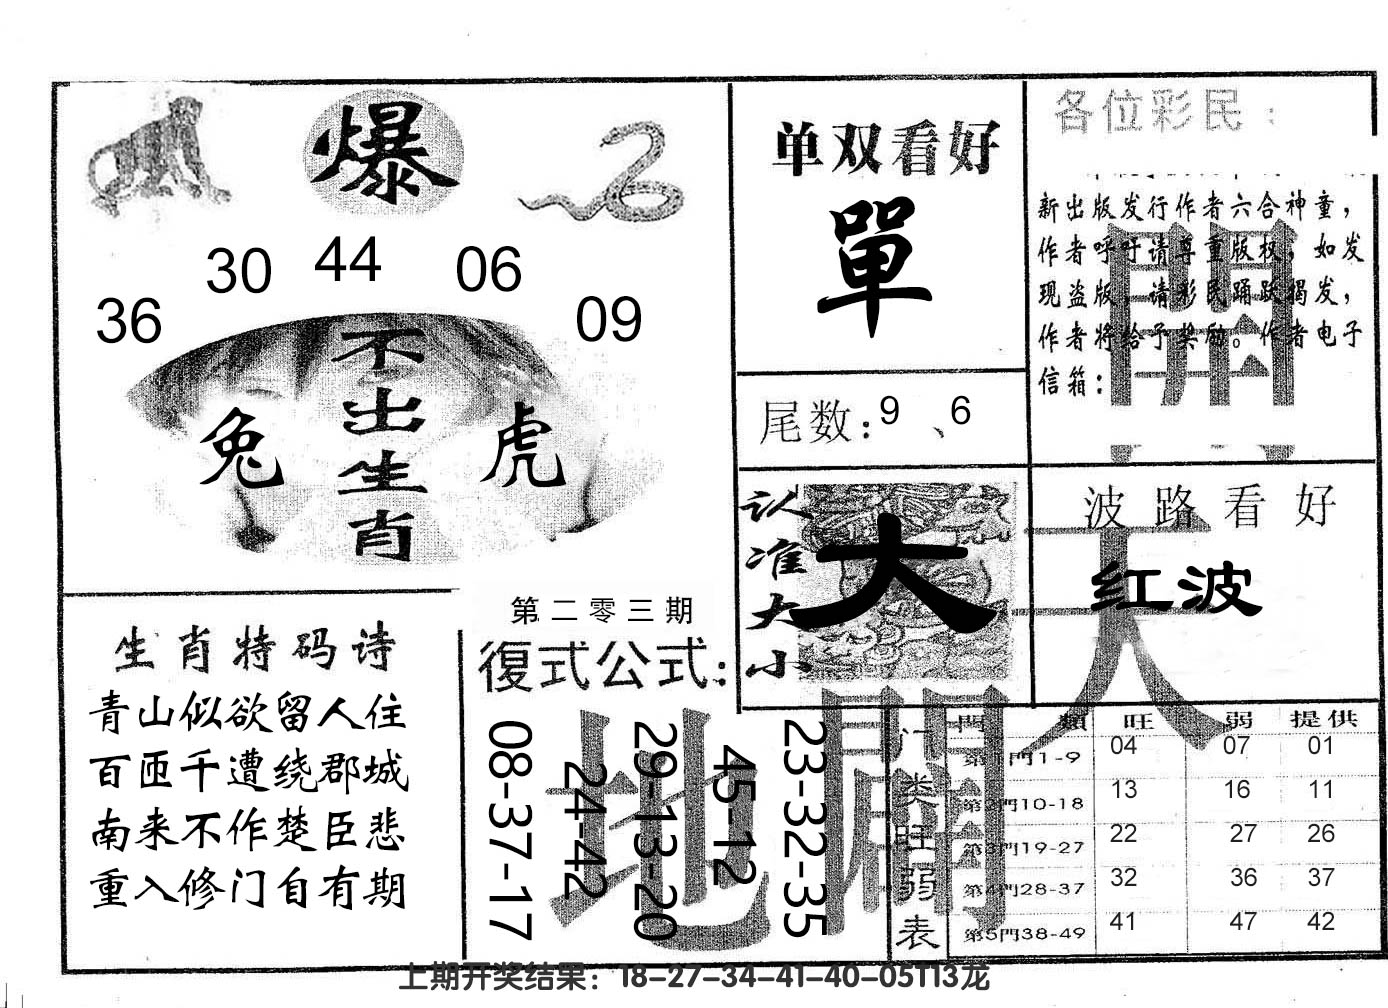 爆
36 30 44 06 09
不出生肖
兔 虎
单双看好
單
尾数：9、6
各位彩民：
新出版发行作者六合神童，
作者呼吁请尊重版权，如发
现盗版，请彩民踊跃揭发，
作者将给予奖励。作者电子
信箱：
認准大小
大
波路看好
红波
生肖特码诗
青山似欲留人住
百匝千遭绕郡城
南来不作楚臣悲
重入修门自有期
第二零三期
復式公式：
08-37-17
24-42
29-13-20
45-12
23-32-35
天
地
門类旺弱表
門類 旺 弱 提供
第1門1-9 04 07 01
第2門10-18 13 16 11
第3門19-27 22 27 26
第4門28-37 32 36 37
第5門38-49 41 47 42
上期开奖结果：18-27-34-41-40-05T13龙